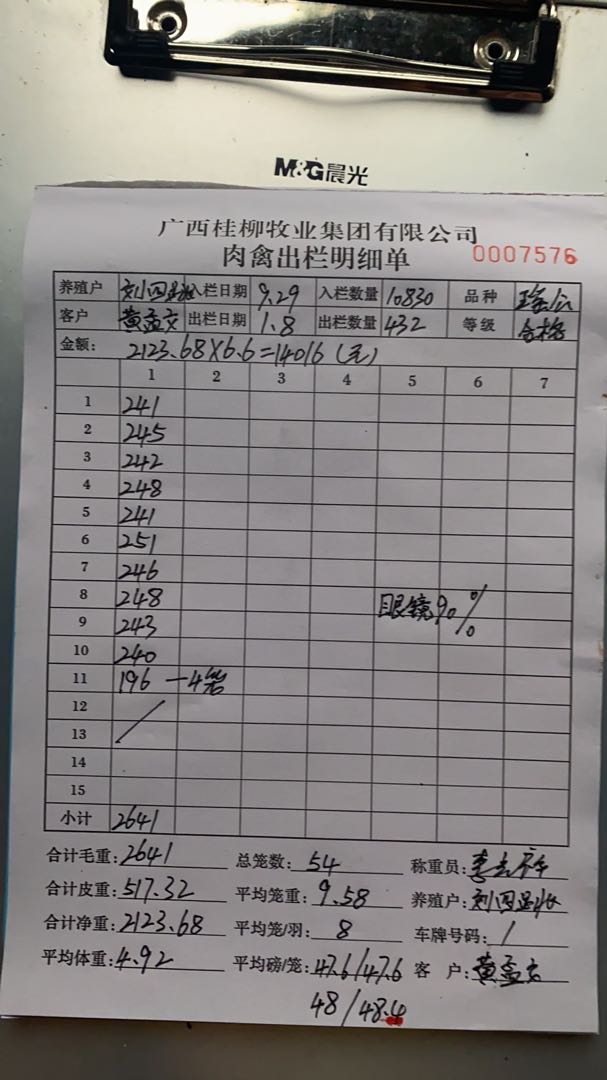 M&G晨光
广西桂柳牧业集团有限公司
肉禽出栏明细单 0007576
养殖户 刘四 入栏日期 9.29 入栏数量 10830 品种 瑶公
客户 黄孟交 出栏日期 1.8 出栏数量 432 等级 合格
金额: 2123.68×6.6=14016(元)
1 2 3 4 5 6 7
1 241
2 245
3 242
4 248
5 241
6 251
7 246
8 248 眼镜90%
9 243
10 240
11 196 一4笼
12
13
14
15
小计 2641
合计毛重:2641 总笼数: 54 称重员: 李
合计皮重:517.32 平均笼重: 9.58 养殖户: 刘四
合计净重:2123.68 平均笼/羽: 8 车牌号码: /
平均体重:4.92 平均磅/笼:47.6/47.6 客 户: 黄孟交
48/48.4